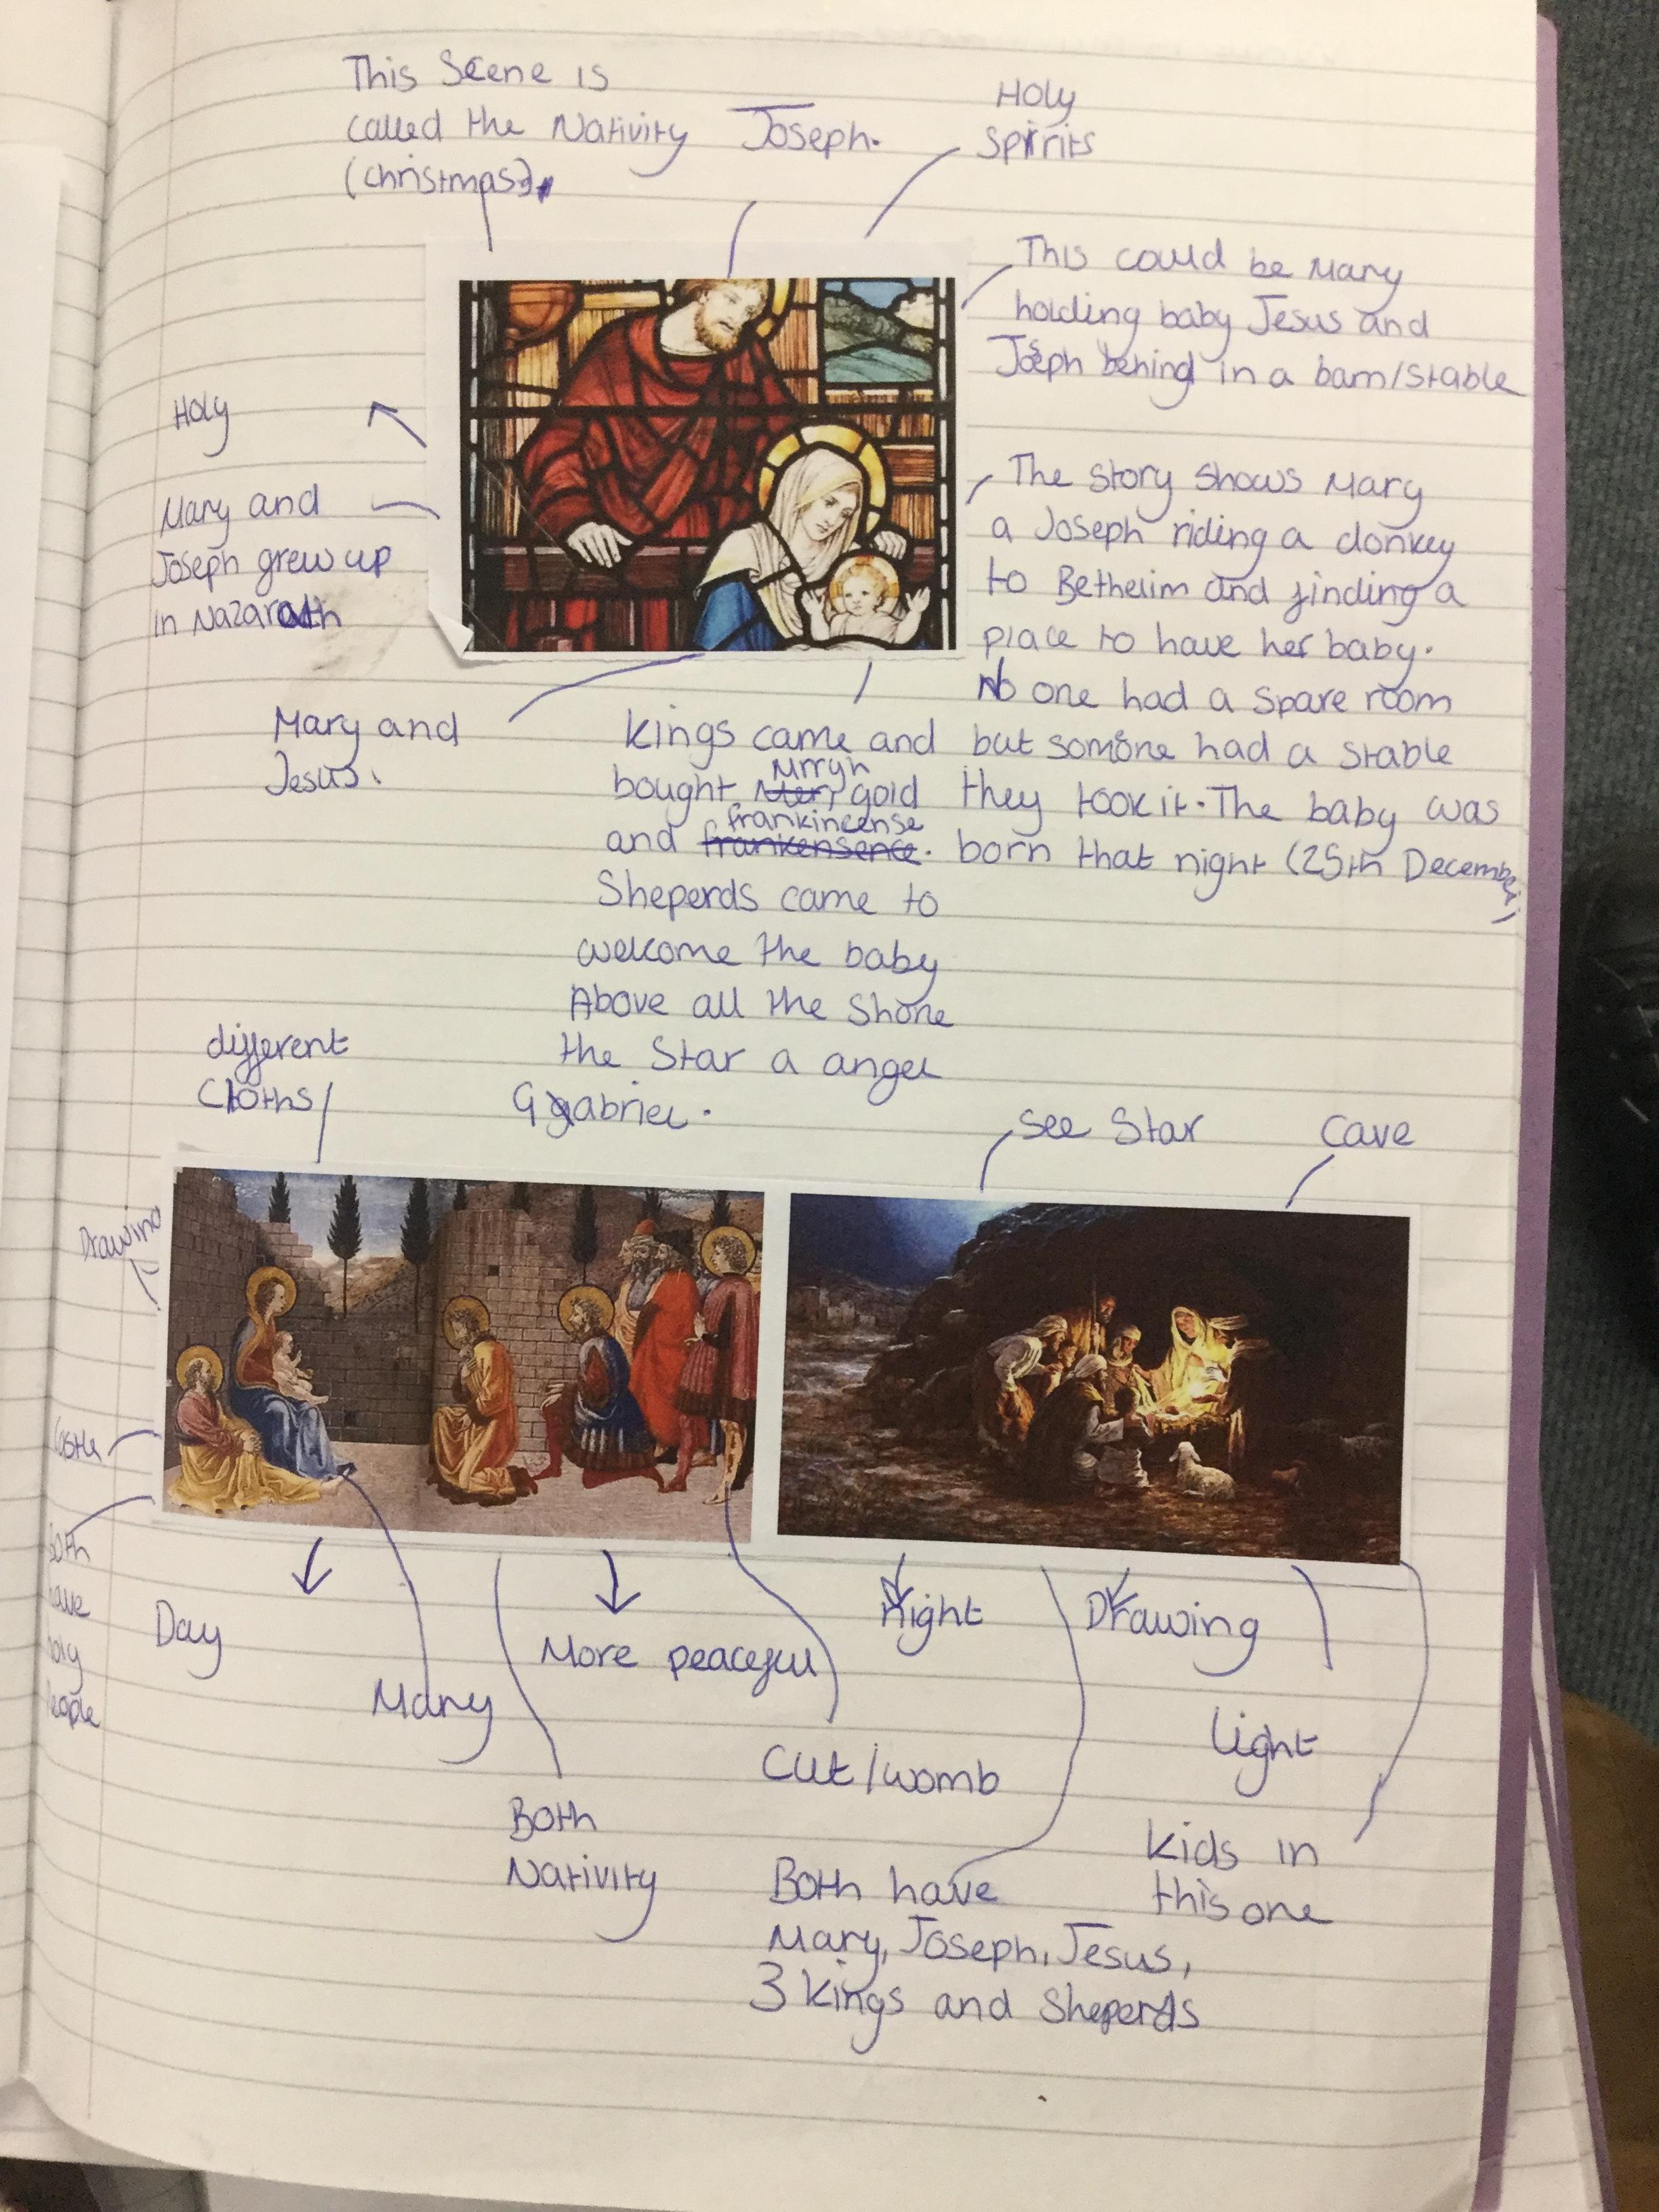 This Scene is
called the Nativity
(christmas).
Joseph.
Holy
Spirits
This could be Mary
holding baby Jesus and
Joseph behind in a barn/stable
Holy
Mary and
Joseph grew up
in Nazarath
The story shows Mary
a Joseph riding a donkey
to Bethelim and finding a
place to have her baby.
No one had a spare room
but somone had a stable
they took it. The baby was
born that night (25th December)
Mary and
Jesus.
Kings came and
bought Mrryh, gold
and frankincense.
frankensence
Sheperds came to
welcome the baby
Above all the Shone
the Star a angel
Gabriel.
different
Cloths
See Star
Cave
Drawing
Castle
Both
have
holy
People
Day
Mary
More peaceful
Night
Drawing
Cut/womb
Light
Both
Nativity
Kids in
this one
Both have
Mary, Joseph, Jesus,
3 Kings and Sheperds